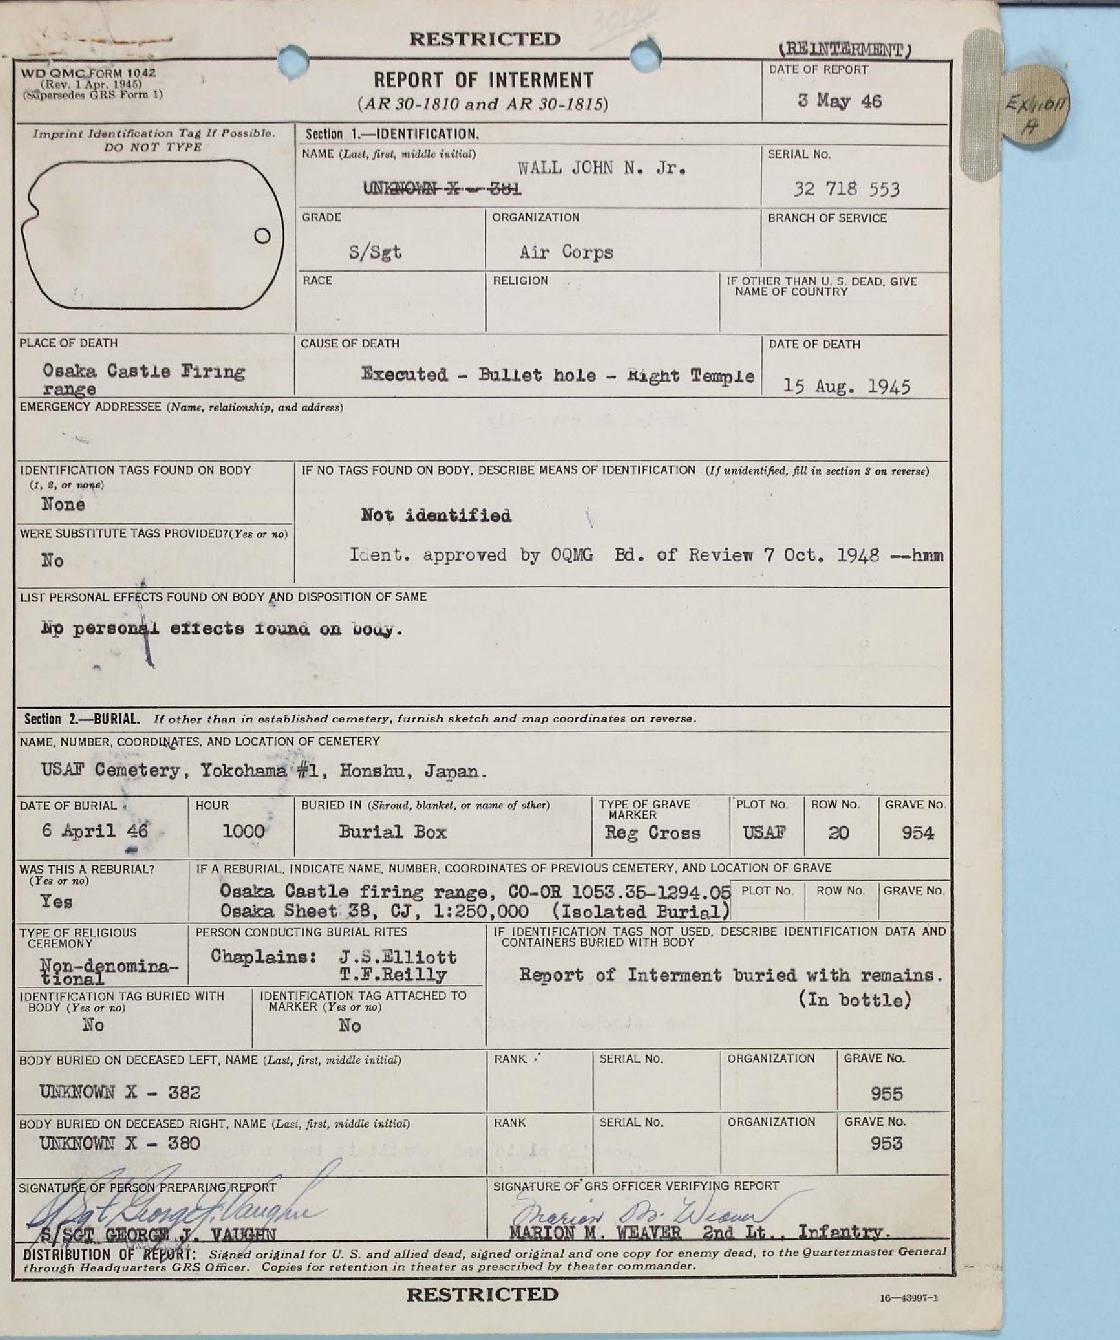 RESTRICTED
(REINTERMENT)
WD QMC FORM 1042
(Rev. 1 Apr. 1945)
(Supersedes GRS Form 1)
REPORT OF INTERMENT
(AR 30-1810 and AR 30-1815)
DATE OF REPORT
3 May 46
EXHIBIT
A
Imprint Identification Tag If Possible.
DO NOT TYPE
Section 1.—IDENTIFICATION.
NAME (Last, first, middle initial)
WALL JOHN N. Jr.
UNKNOWN X - 381
SERIAL No.
32 718 553
GRADE
S/Sgt
ORGANIZATION
Air Corps
BRANCH OF SERVICE
RACE
RELIGION
IF OTHER THAN U. S. DEAD, GIVE
NAME OF COUNTRY
PLACE OF DEATH
Osaka Castle Firing
range
CAUSE OF DEATH
Executed - Bullet hole - Right Temple
DATE OF DEATH
15 Aug. 1945
EMERGENCY ADDRESSEE (Name, relationship, and address)
IDENTIFICATION TAGS FOUND ON BODY
(1, 2, or none)
None
WERE SUBSTITUTE TAGS PROVIDED?(Yes or no)
No
IF NO TAGS FOUND ON BODY, DESCRIBE MEANS OF IDENTIFICATION (If unidentified, fill in section 3 on reverse)
Not identified
Ident. approved by OQMG Bd. of Review 7 Oct. 1948 --hmm
LIST PERSONAL EFFECTS FOUND ON BODY AND DISPOSITION OF SAME
No personal effects found on body.
Section 2.—BURIAL. If other than in established cemetery, furnish sketch and map coordinates on reverse.
NAME, NUMBER, COORDINATES, AND LOCATION OF CEMETERY
USAF Cemetery, Yokohama #1, Honshu, Japan.
DATE OF BURIAL
6 April 46
HOUR
1000
BURIED IN (Shroud, blanket, or name of other)
Burial Box
TYPE OF GRAVE
MARKER
Reg Cross
PLOT No.
USAF
ROW No.
20
GRAVE No.
954
WAS THIS A REBURIAL?
(Yes or no)
Yes
IF A REBURIAL, INDICATE NAME, NUMBER, COORDINATES OF PREVIOUS CEMETERY, AND LOCATION OF GRAVE
Osaka Castle firing range, CO-OR 1053.35-1294.05
Osaka Sheet 38, CJ, 1:250,000 (Isolated Burial)
PLOT No.
ROW No.
GRAVE No.
TYPE OF RELIGIOUS
CEREMONY
Non-denomina-
tional
PERSON CONDUCTING BURIAL RITES
Chaplains: J.S.Elliott
T.F.Reilly
IF IDENTIFICATION TAGS NOT USED, DESCRIBE IDENTIFICATION DATA AND
CONTAINERS BURIED WITH BODY
Report of Interment buried with remains.
(In bottle)
IDENTIFICATION TAG BURIED WITH
BODY (Yes or no)
No
IDENTIFICATION TAG ATTACHED TO
MARKER (Yes or no)
No
BODY BURIED ON DECEASED LEFT, NAME (Last, first, middle initial)
UNKNOWN X - 382
RANK
SERIAL No.
ORGANIZATION
GRAVE No.
955
BODY BURIED ON DECEASED RIGHT, NAME (Last, first, middle initial)
UNKNOWN X - 380
RANK
SERIAL No.
ORGANIZATION
GRAVE No.
953
SIGNATURE OF PERSON PREPARING REPORT
S/Sgt George J. Vaughn
S/SGT GEORGE J. VAUGHN
SIGNATURE OF GRS OFFICER VERIFYING REPORT
Marion M. Weaver
MARION M. WEAVER 2nd Lt., Infantry.
DISTRIBUTION OF REPORT: Signed original for U. S. and allied dead, signed original and one copy for enemy dead, to the Quartermaster General
through Headquarters GRS Officer. Copies for retention in theater as prescribed by theater commander.
RESTRICTED
16—43907-1